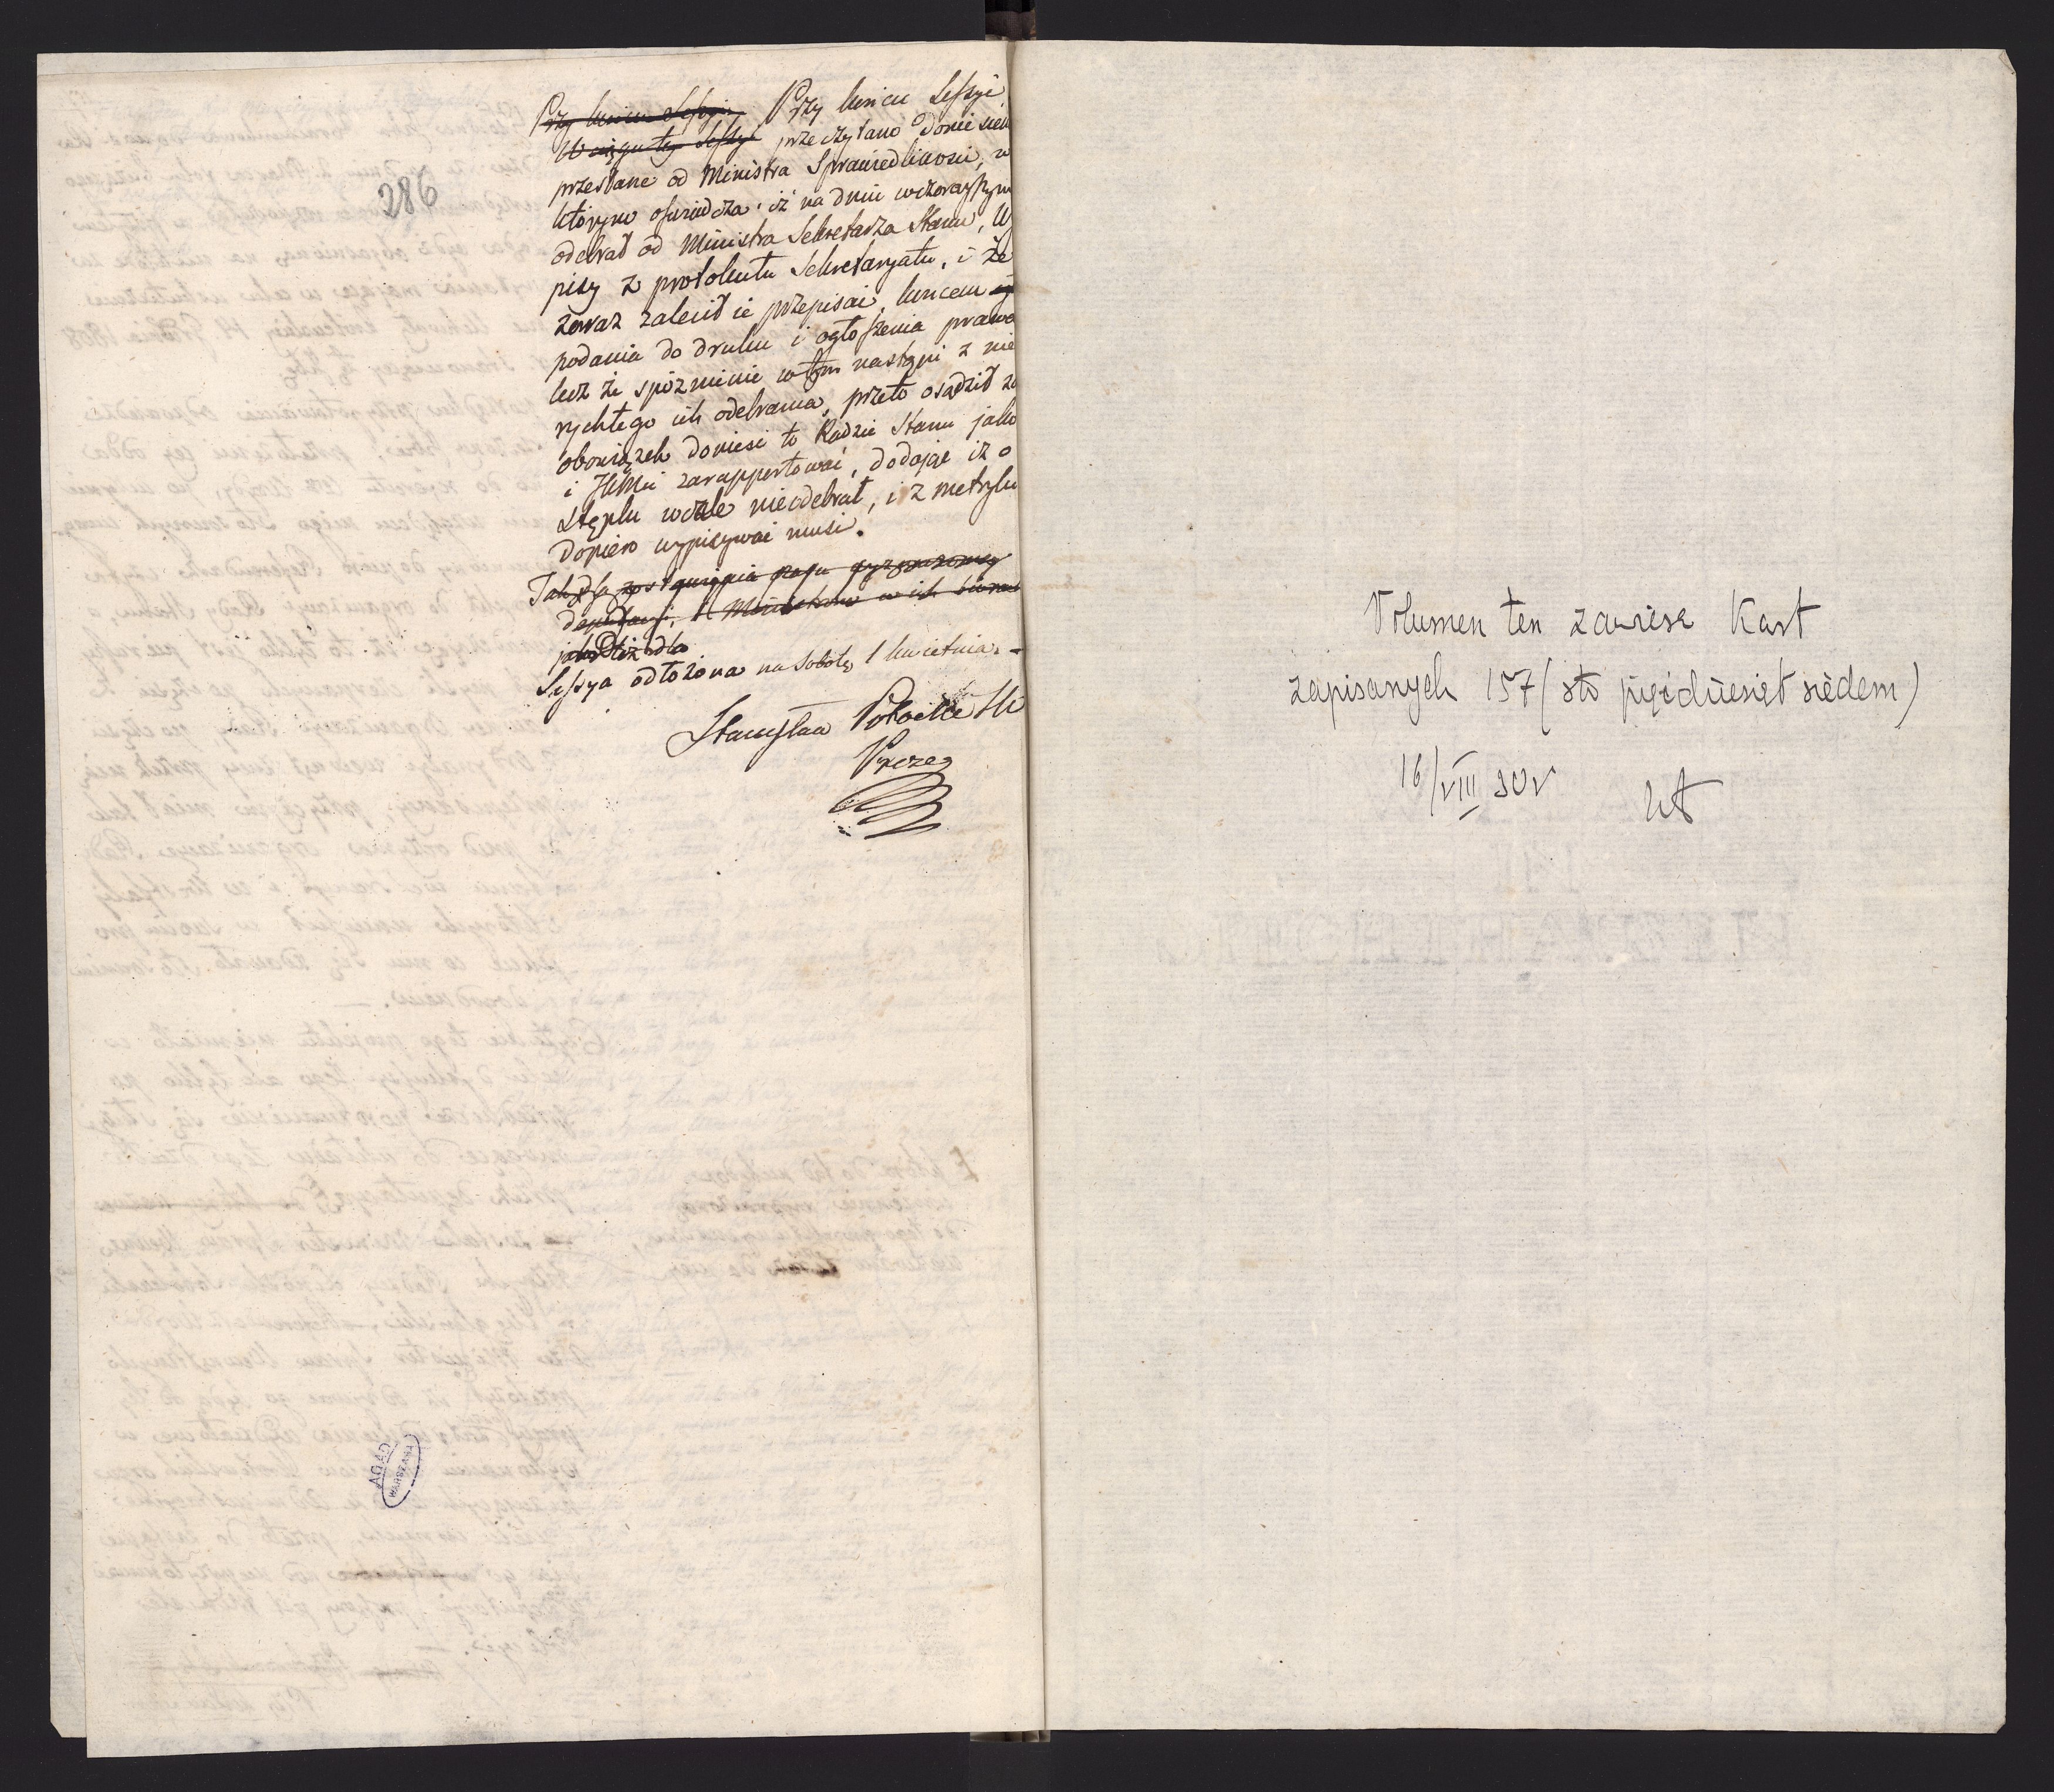 286
Przy końcu Sessyi Przy końcu Sessyi
W ciągu tey Sessyi przeczytano Doniesien
przesłane od Ministra Sprawiedliwości, w
którym oświadcza iż na dniu wczorayszym
odebrał od Ministra Sekretarza Stanu, Wy
pisy z protokułu Sekretaryatu, i że
zaraz zalecił ie przepisać, końcem
podania do druku i ogłoszenia prawa
lecz że spóźnienie w tym nastąpi z nie
rychłego ich odebrania, przeto osądził za
obowiązek donieść to Radzie Stanu jako
i JKMci zarapportować, dodając iż o
Stęplu wcale nieodebrał, i z metryku
dopiero wypisywać musi.
Sessya odłożona na Sobotę 1 kwietnia. -
Stanisław Potocki
Prezes
AGAD
WARSZAWA
Volumen ten zawiera Kart
zapisanych 157 (sto pięćdziesiąt siedem)
16/VIII